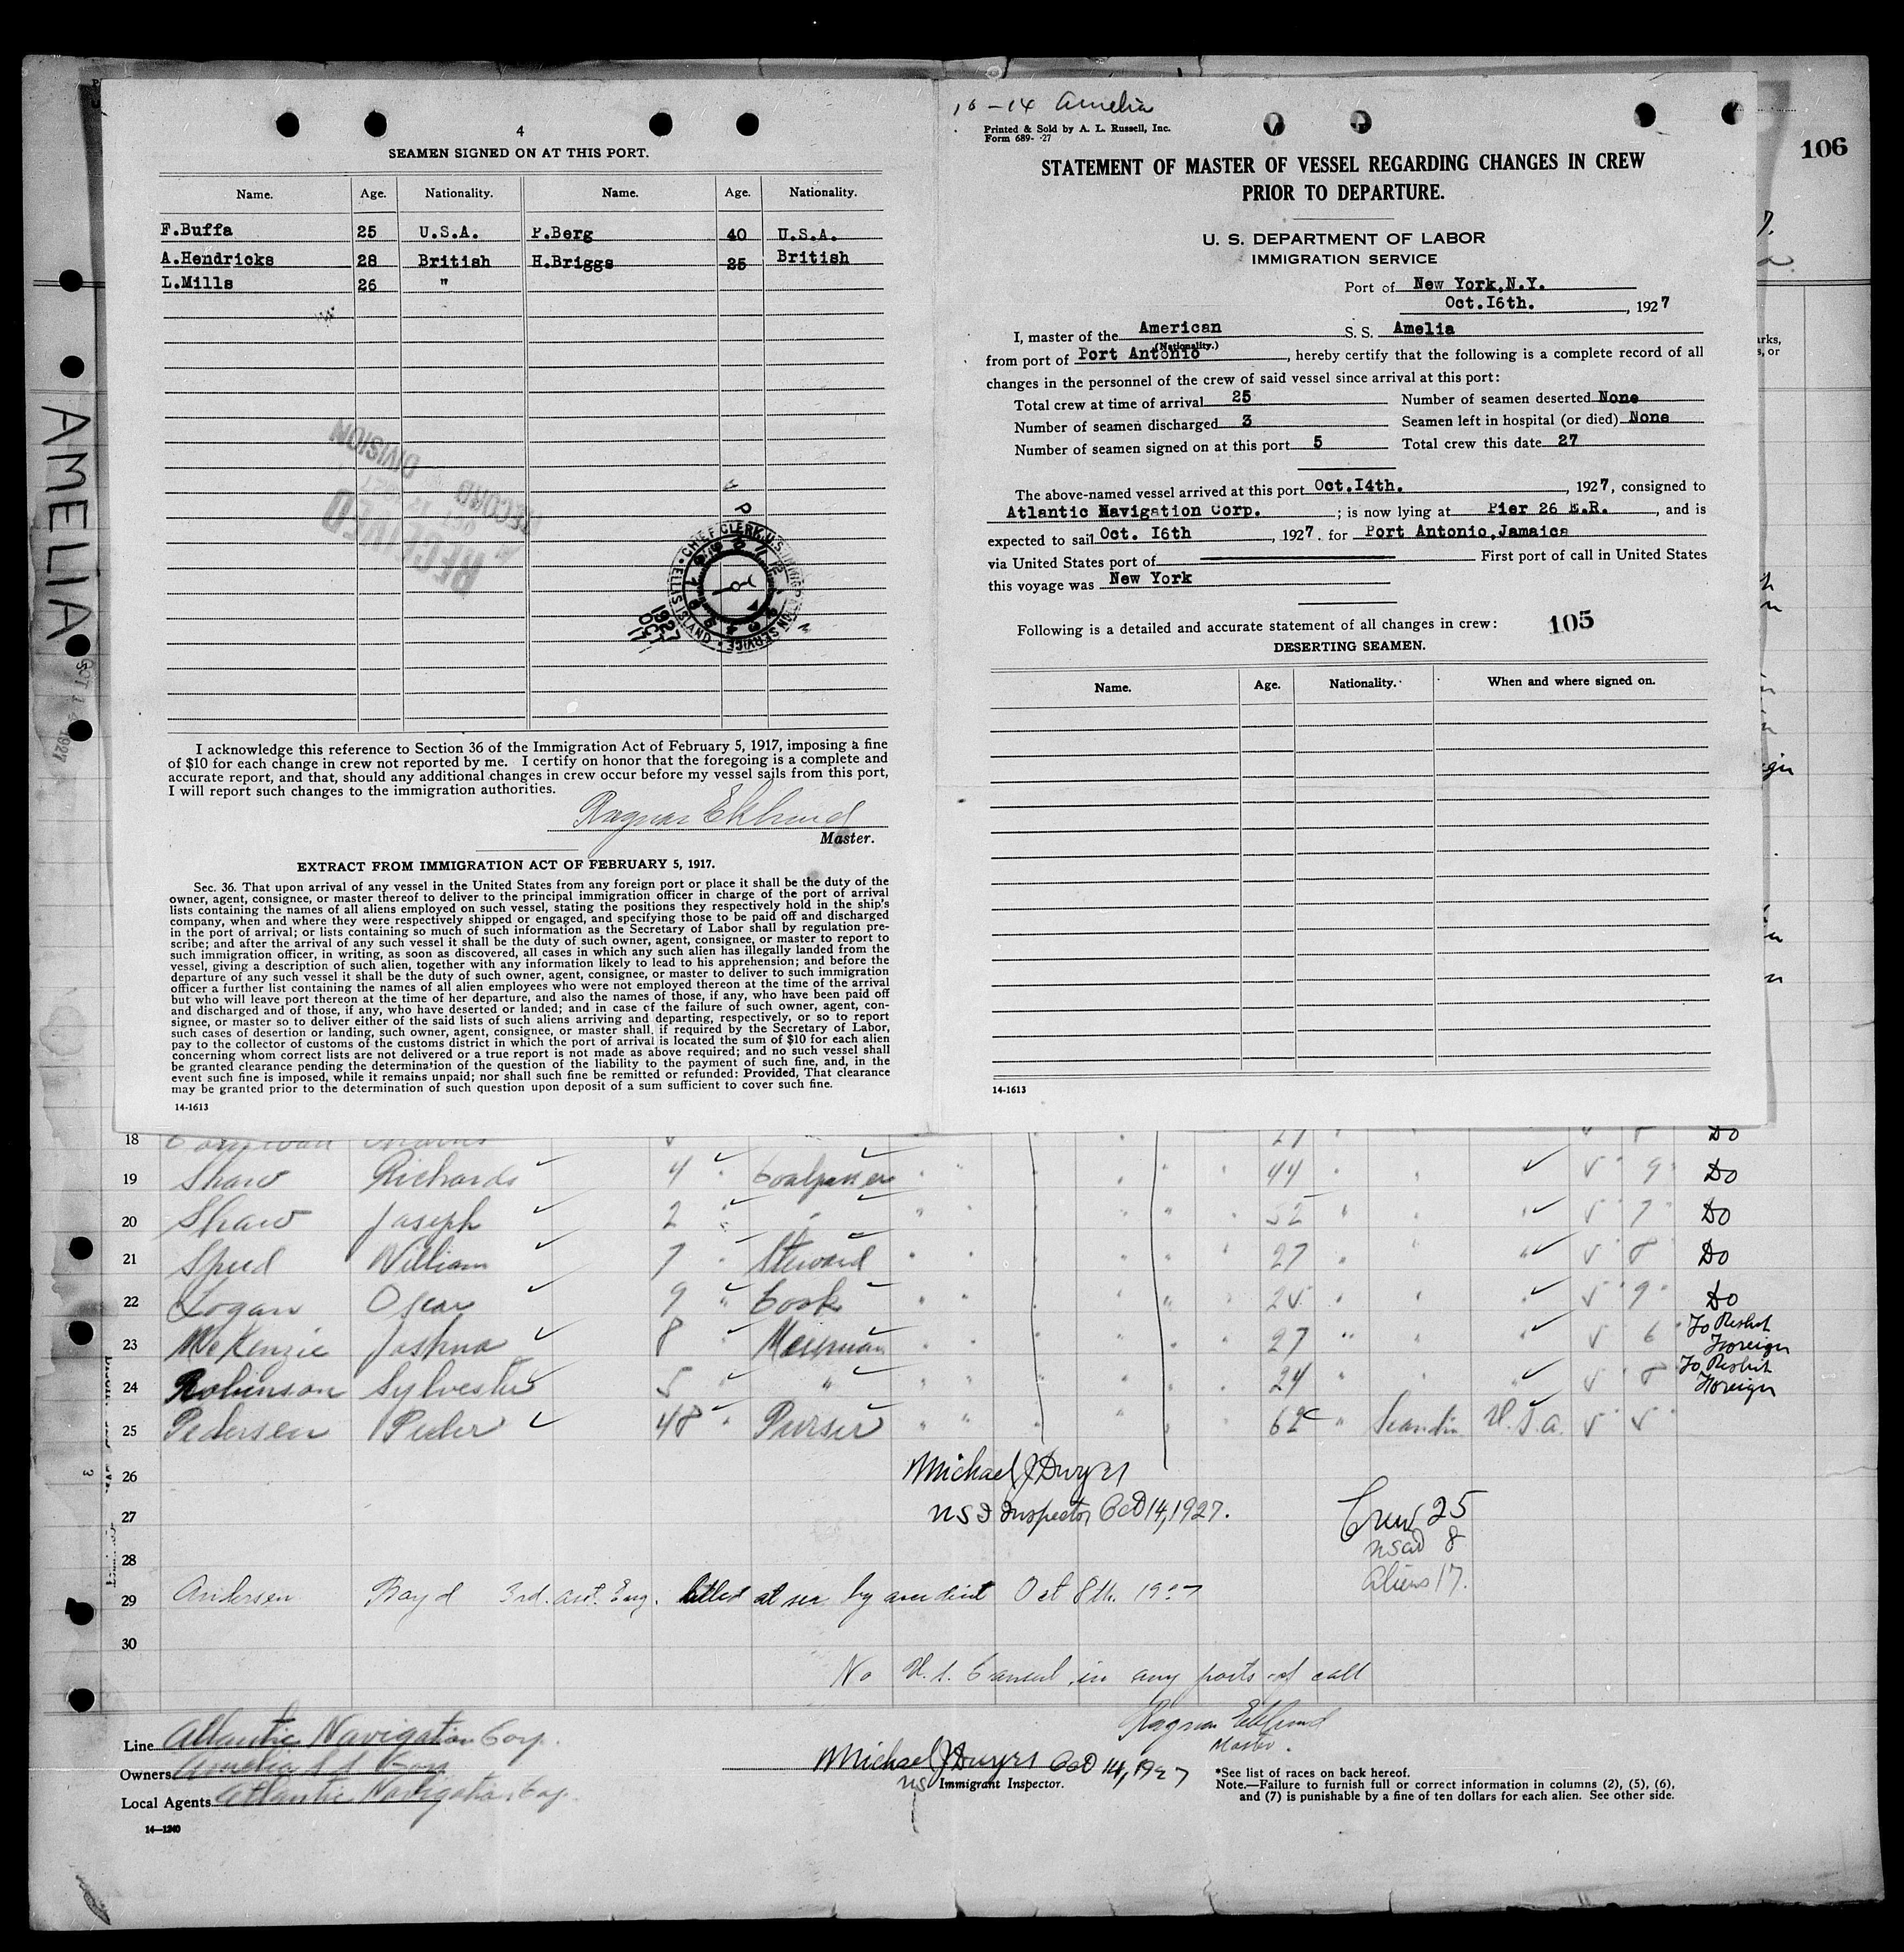 4
SEAMEN SIGNED ON AT THIS PORT.
Name. Age. Nationality. Name. Age. Nationality.
F.Buffa 25 U.S.A. P.Berg 40 U.S.A.
A.Hendricks 28 British H.Briggs 25 British
L.Mills 26 "
RECEIVED
RECORD DIVISION
CHIEF CLERK U.S. IMMIGRATION SERVICE ELLIS ISLAND
1927 OCT
I acknowledge this reference to Section 36 of the Immigration Act of February 5, 1917, imposing a fine
of $10 for each change in crew not reported by me. I certify on honor that the foregoing is a complete and
accurate report, and that, should any additional changes in crew occur before my vessel sails from this port,
I will report such changes to the immigration authorities.
Ragnar Eklund
Master.
EXTRACT FROM IMMIGRATION ACT OF FEBRUARY 5, 1917.
Sec. 36. That upon arrival of any vessel in the United States from any foreign port or place it shall be the duty of the
owner, agent, consignee, or master thereof to deliver to the principal immigration officer in charge of the port of arrival
lists containing the names of all aliens employed on such vessel, stating the positions they respectively hold in the ship's
company, when and where they were respectively shipped or engaged, and specifying those to be paid off and discharged
in the port of arrival; or lists containing so much of such information as the Secretary of Labor shall by regulation pre-
scribe; and after the arrival of any such vessel it shall be the duty of such owner, agent, consignee, or master to report to
such immigration officer, in writing, as soon as discovered, all cases in which any such alien has illegally landed from the
vessel, giving a description of such alien, together with any information likely to lead to his apprehension; and before the
departure of any such vessel it shall be the duty of such owner, agent, consignee, or master to deliver to such immigration
officer a further list containing the names of all alien employees who were not employed thereon at the time of the arrival
but who will leave port thereon at the time of her departure, and also the names of those, if any, who have been paid off
and discharged and of those, if any, who have deserted or landed; and in case of the failure of such owner, agent, con-
signee, or master so to deliver either of the said lists of such aliens arriving and departing, respectively, or so to report
such cases of desertion or landing, such owner, agent, consignee, or master shall, if required by the Secretary of Labor,
pay to the collector of customs of the customs district in which the port of arrival is located the sum of $10 for each alien
concerning whom correct lists are not delivered or a true report is not made as above required; and no such vessel shall
be granted clearance pending the determination of the question of the liability to the payment of such fine, and, in the
event such fine is imposed, while it remains unpaid; nor shall such fine be remitted or refunded: Provided, That clearance
may be granted prior to the determination of such question upon deposit of a sum sufficient to cover such fine.
14-1613
10-14 Amelia
Printed & Sold by A. L. Russell, Inc.
Form 689- -27
STATEMENT OF MASTER OF VESSEL REGARDING CHANGES IN CREW
PRIOR TO DEPARTURE.
U. S. DEPARTMENT OF LABOR
IMMIGRATION SERVICE
Port of New York,N.Y.
Oct.16th., 1927
I, master of the American S. S. Amelia
(Nationality.)
from port of Port Antonio, hereby certify that the following is a complete record of all
changes in the personnel of the crew of said vessel since arrival at this port:
Total crew at time of arrival 25 Number of seamen deserted None
Number of seamen discharged 3 Seamen left in hospital (or died) None
Number of seamen signed on at this port 5 Total crew this date 27
The above-named vessel arrived at this port Oct.14th., 1927, consigned to
Atlantic Navigation Corp.; is now lying at Pier 26 E.R., and is
expected to sail Oct. 16th, 1927. for Port Antonio,Jamaica
via United States port of First port of call in United States
this voyage was New York
Following is a detailed and accurate statement of all changes in crew: 105
DESERTING SEAMEN.
Name. Age. Nationality. When and where signed on.
14-1613
106
AMELIA
18 27 Do
19 Shaw Richards 4 Coalpasser 44 9 Do
20 Shaw Joseph 2 " 52 7 Do
21 Speed William 7 Steward 27 8 Do
22 Logan Oscar 9 Cook 25 9 Do
23 McKenzie Joshua 8 Messman 27 6 To Reship Foreign
24 Robinson Sylvester 5 " 24 8 To Reship Foreign
25 Pedersen Peder 48 Purser 62 Scandin U.S.A. 5 5
26 Michael J Dwyer
27 US I Inspector Oct 14, 1927. Crew 25
28 USCit 8
Aliens 17.
29 Andersen Boyd 3rd. Ast. Eng. killed at sea by accident Oct 8th. 1927
30
No U.S. Consul in any ports of call
Ragnar Eklund
Master.
Line Atlantic Navigation Corp.
Owners Amelia SS Corp
Local Agents Atlantic Navigation Corp.
Michael J Dwyer Oct 14, 1927
US Immigrant Inspector.
*See list of races on back hereof.
Note.—Failure to furnish full or correct information in columns (2), (5), (6),
and (7) is punishable by a fine of ten dollars for each alien. See other side.
14—1240